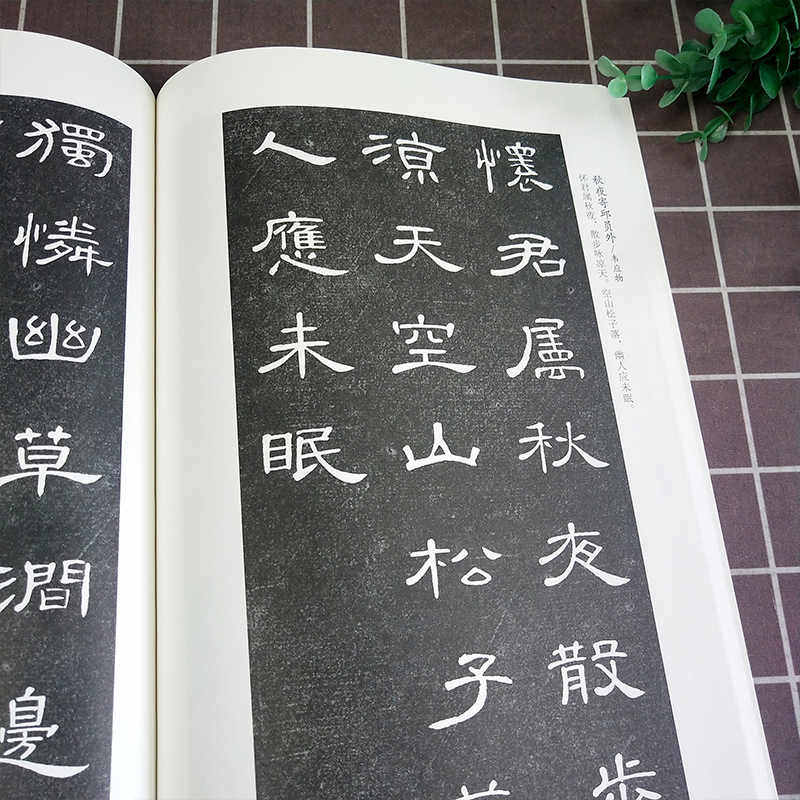 秋夜寄邱员外/韦应物
怀君属秋夜，散步咏凉天。空山松子落，幽人应未眠。
懷君属秋夜散步
涼天空山松子
人應未眠
獨憐幽草澗邊